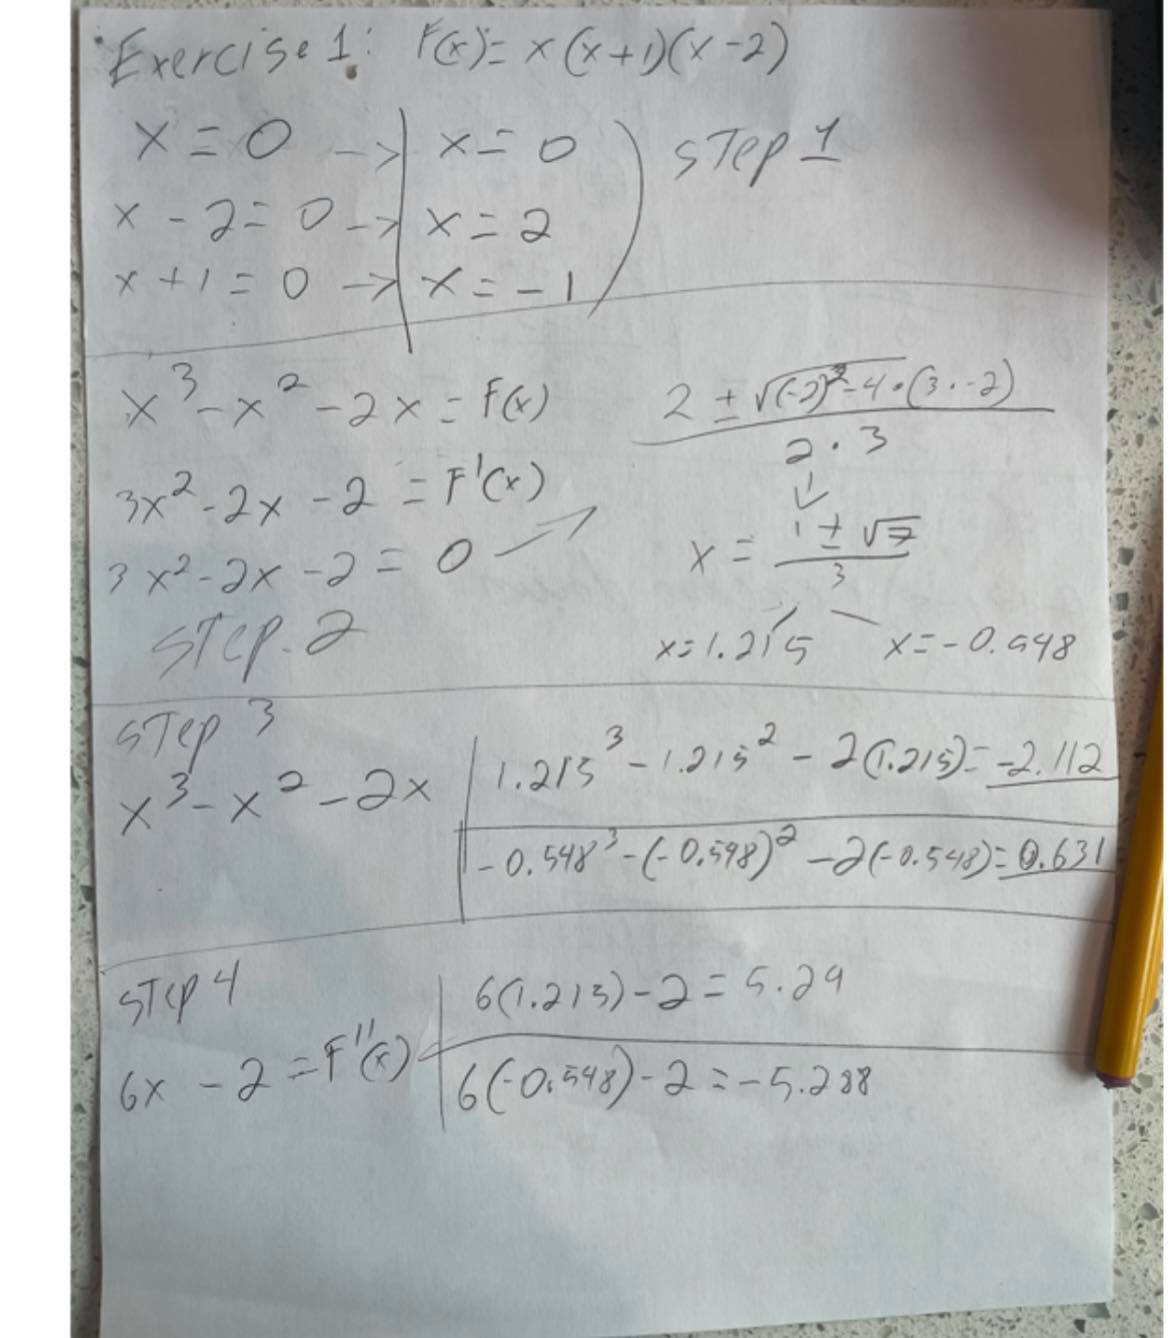 Exercise 1: F(x) = x(x+1)(x-2)
x = 0 -> x = 0
Step 1
x - 2 = 0 -> x = 2
x + 1 = 0 -> x = -1
x³ - x² - 2x = F(x)
3x² - 2x - 2 = F'(x)
3x² - 2x - 2 = 0
Step. 2
2 ± √(-2)² - 4 · (3 · -2)
2 · 3
x = 1 ± √7
3
x = 1.215 x = -0.548
Step 3
x³ - x² - 2x
1.215³ - 1.215² - 2(1.215) = -2.112
-0.548³ - (-0.548)² - 2(-0.548) = 0.631
Step 4
6x - 2 = F''(x)
6(1.215) - 2 = 5.29
6(-0.548) - 2 = -5.288